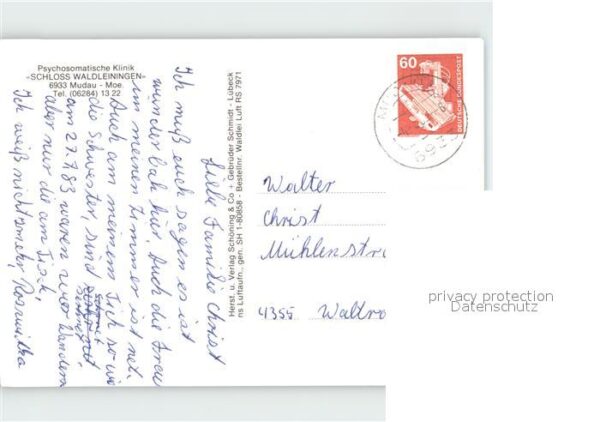 Psychosomatische Klinik
»SCHLOSS WALDLEININGEN«
6933 Mudau - Moe.
Tel. (06284) 13 22
Liebe Familie Christ
Ich muß euch sagen es ist
wunderbar hier. Auch die Frau
in meinen Zimmer ist net.
Auch am meinem Tisch so wie
die Schwester, sind
am 27.7.83 waren wir Wandern
aber nur die am Tisch.
Ich weiß nicht mehr, Roswitha
Herst. u. Verlag Schöning & Co + Gebrüder Schmidt - Lübeck
ns Luftaufn., gen. SH 1-80858 - Bestellnr. Waldlei Luft RS 7971
60
DEUTSCHE BUNDESPOST
693
Walter
Christ
Mühlenstr
4355 Waltro
privacy protection
Datenschutz